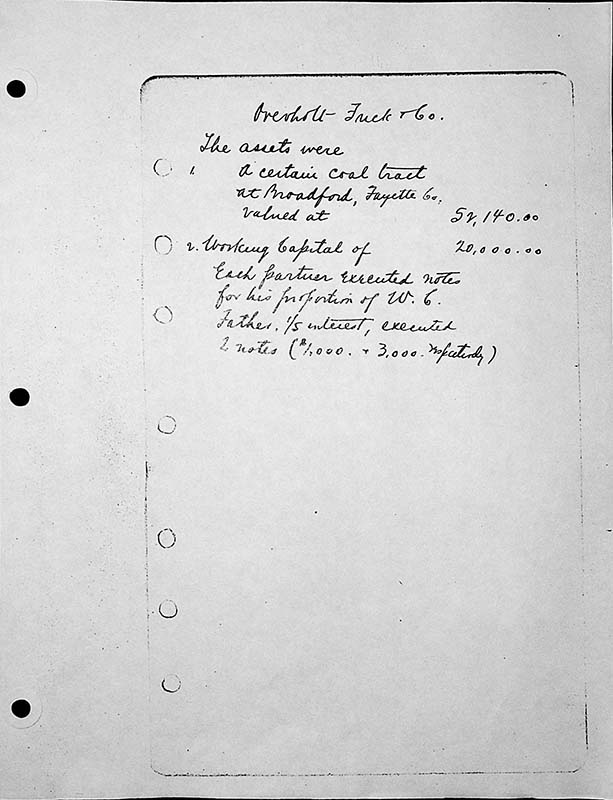 Overholt Frick & Co.
The assets were
1. A certain coal tract
at Broadford, Fayette Co.
valued at 52,140.00
2. Working Capital of 20,000.00
Each partner executed notes
for his proportion of W. C.
Father, 1/5 interest, executed
2 notes ($1,000. + 3,000. respectively)